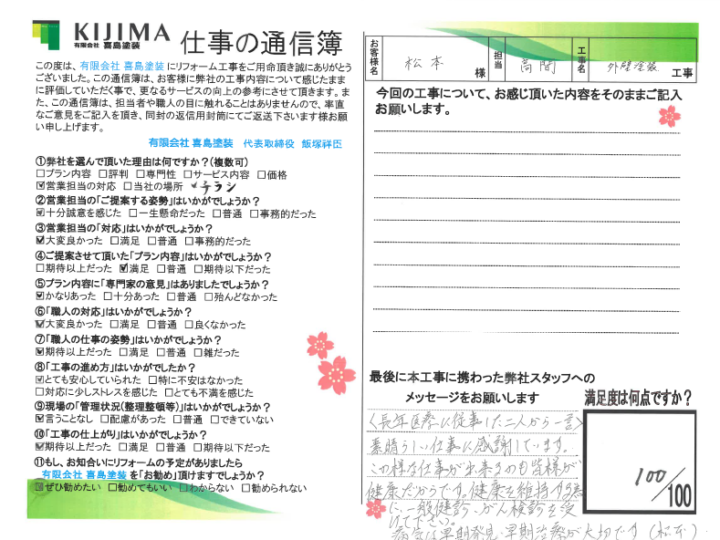 KIJIMA
有限会社 喜島塗装
仕事の通信簿
この度は、有限会社 喜島塗装にリフォーム工事をご用命頂き誠にありがとう
ございました。この通信簿は、お客様に弊社の工事内容について感じたまま
に評価していただく事で、更なるサービスの向上の参考にさせて頂きます。ま
た、この通信簿は、担当者や職人の目に触れることはありませんので、率直
なご意見をご記入を頂き、同封の返信用封筒にてご返送下さいます様お願
い申し上げます。
有限会社 喜島塗装 代表取締役 飯塚祥臣
①弊社を選んで頂いた理由は何ですか？(複数可)
□プラン内容 □評判 □専門性 □サービス内容 □価格
☑営業担当の対応 □当社の場所 チラシ
②営業担当の「ご提案する姿勢」はいかがでしょうか？
☑十分誠意を感じた □一生懸命だった □普通 □事務的だった
③営業担当の「対応」はいかがでしょうか？
☑大変良かった □満足 □普通 □事務的だった
④ご提案させて頂いた「プラン内容」はいかがでしょうか？
□期待以上だった ☑満足 □普通 □期待以下だった
⑤プラン内容に「専門家の意見」はありましたでしょうか？
☑かなりあった □十分あった □普通 □殆んどなかった
⑥「職人の対応」はいかがでしょうか？
☑大変良かった □満足 □普通 □良くなかった
⑦「職人の仕事の姿勢」はいかがでしょうか？
☑期待以上だった □満足 □普通 □雑だった
⑧「工事の進め方」はいかがでしたか？
☑とても安心していられた □特に不安はなかった
□対応に少しストレスを感じた □とても不満を感じた
⑨現場の「管理状況(整理整頓等)」はいかがでしょうか？
☑言うことなし □配慮があった □普通 □できていない
⑩「工事の仕上がり」はいかがでしょうか？
☑期待以上だった □満足 □普通 □期待以下だった
⑪もし、お知合いにリフォームの予定がありましたら
有限会社 喜島塗装を「お勧め」頂けますでしょうか？
☑ぜひ勧めたい □勧めてもいい □わからない □勧められない
お客様名 松本 様 担当 高間 工事名 外壁塗装 工事
今回の工事について、お感じ頂いた内容をそのままご記入
お願いします。
最後に本工事に携わった弊社スタッフへの
メッセージをお願いします
〈長年医療に従事した二人から一言〉
素晴らしい仕事に感謝しています。
この様な仕事が出来るのも皆様が
健康だからです。健康を維持する為
に、一般健診・がん検診を受
けて下さい。
病気は早期発見・早期治療が大切です (松本)
満足度は何点ですか？
100/100